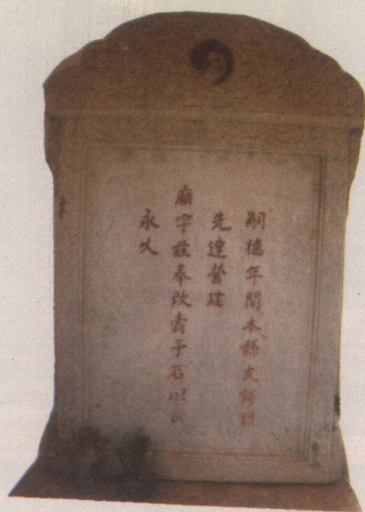 嗣德年間本縣文譜諸
先達營建
廟宇茲奉改壽于石以
永久